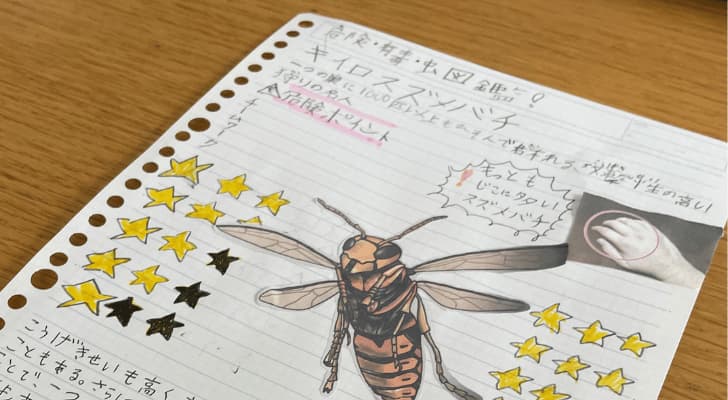 危険・有毒・虫図鑑!
キイロスズメバチ
一つの巣に1000匹以上もすんで群れる攻撃性の高い
狩りの名人
⚠危険ポイント
チームワーク
もっとも
じこは多い
スズメバチ!
こうげきせいも高く
こともある。さらに
ことで、一つ